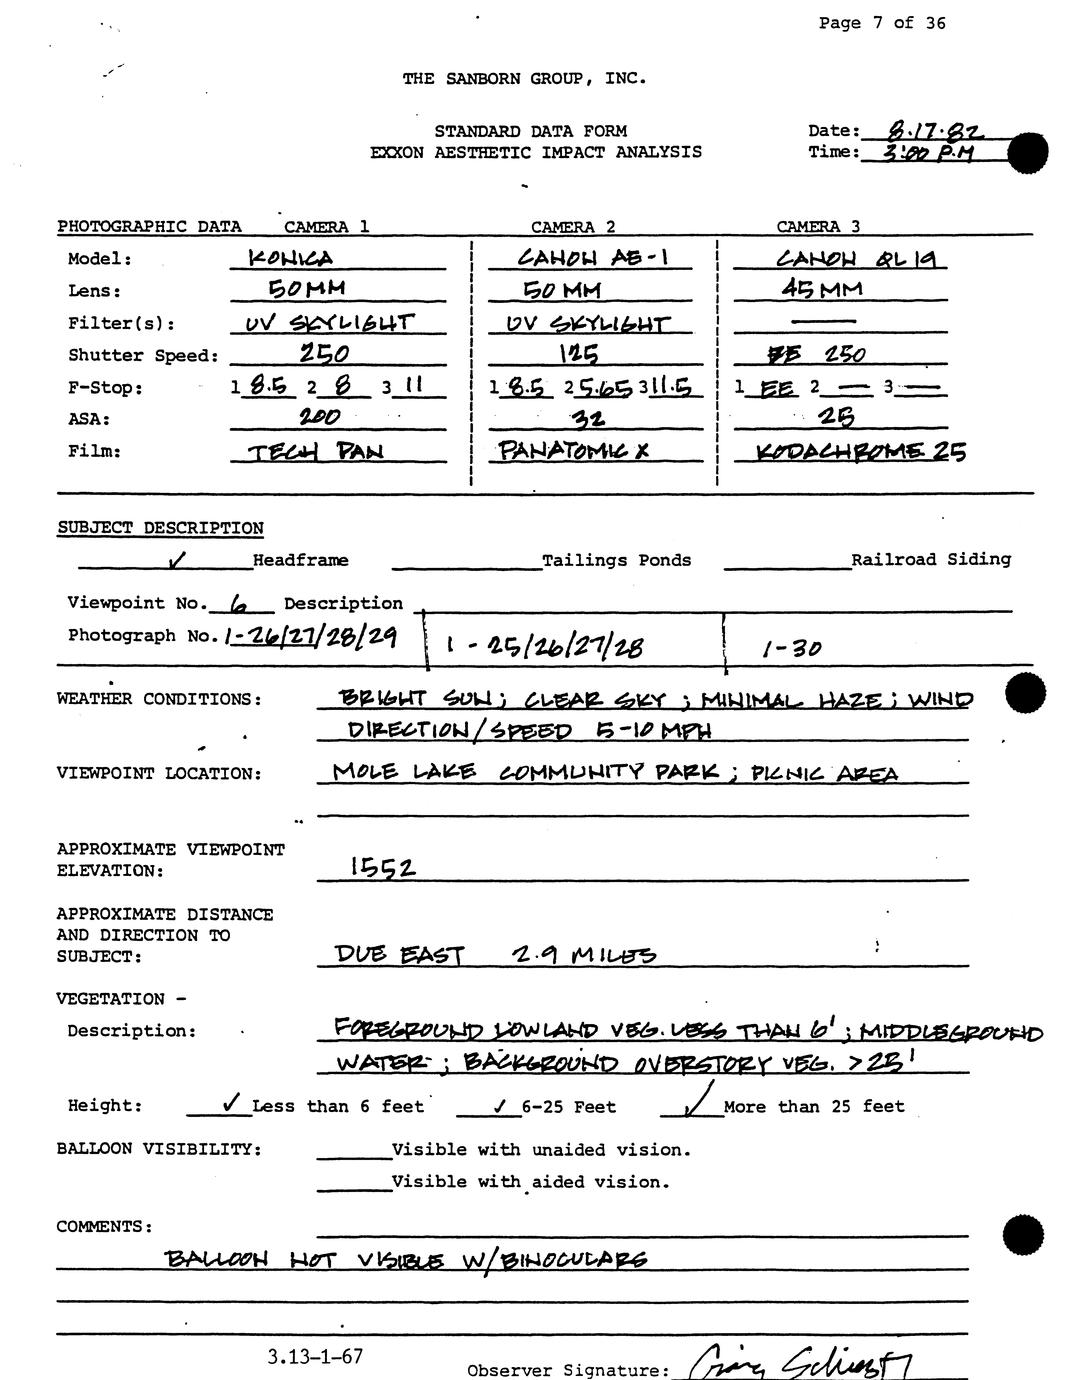 Page 7 of 36
THE SANBORN GROUP, INC.
STANDARD DATA FORM
EXXON AESTHETIC IMPACT ANALYSIS
Date: 8.17.82
Time: 3:00 P.M
PHOTOGRAPHIC DATA CAMERA 1 CAMERA 2 CAMERA 3
Model: KONICA CANON AE-1 CANON QL 19
Lens: 50MM 50 MM 45 MM
Filter(s): UV SKYLIGHT UV SKYLIGHT —
Shutter Speed: 250 125 250
F-Stop: 1 8.5 2 8 3 11 1 8.5 2 5.65 3 11.5 1 EE 2 — 3 —
ASA: 200 32 25
Film: TECH PAN PANATOMIC X KODACHROME 25
SUBJECT DESCRIPTION
✓ Headframe Tailings Ponds Railroad Siding
Viewpoint No. 6 Description
Photograph No. 1-26/27/28/29 1 - 25/26/27/28 1-30
WEATHER CONDITIONS: BRIGHT SUN; CLEAR SKY; MINIMAL HAZE; WIND
DIRECTION/SPEED 5-10 MPH
VIEWPOINT LOCATION: MOLE LAKE COMMUNITY PARK; PICNIC AREA
APPROXIMATE VIEWPOINT
ELEVATION: 1552
APPROXIMATE DISTANCE
AND DIRECTION TO
SUBJECT: DUE EAST 2.9 MILES
VEGETATION -
Description: FOREGROUND LOWLAND VEG. LESS THAN 6'; MIDDLEGROUND
WATER; BACKGROUND OVERSTORY VEG. >25'
Height: ✓ Less than 6 feet ✓ 6-25 Feet ✓ More than 25 feet
BALLOON VISIBILITY: Visible with unaided vision.
Visible with aided vision.
COMMENTS:
BALLOON NOT VISIBLE W/BINOCULARS
3.13-1-67
Observer Signature: